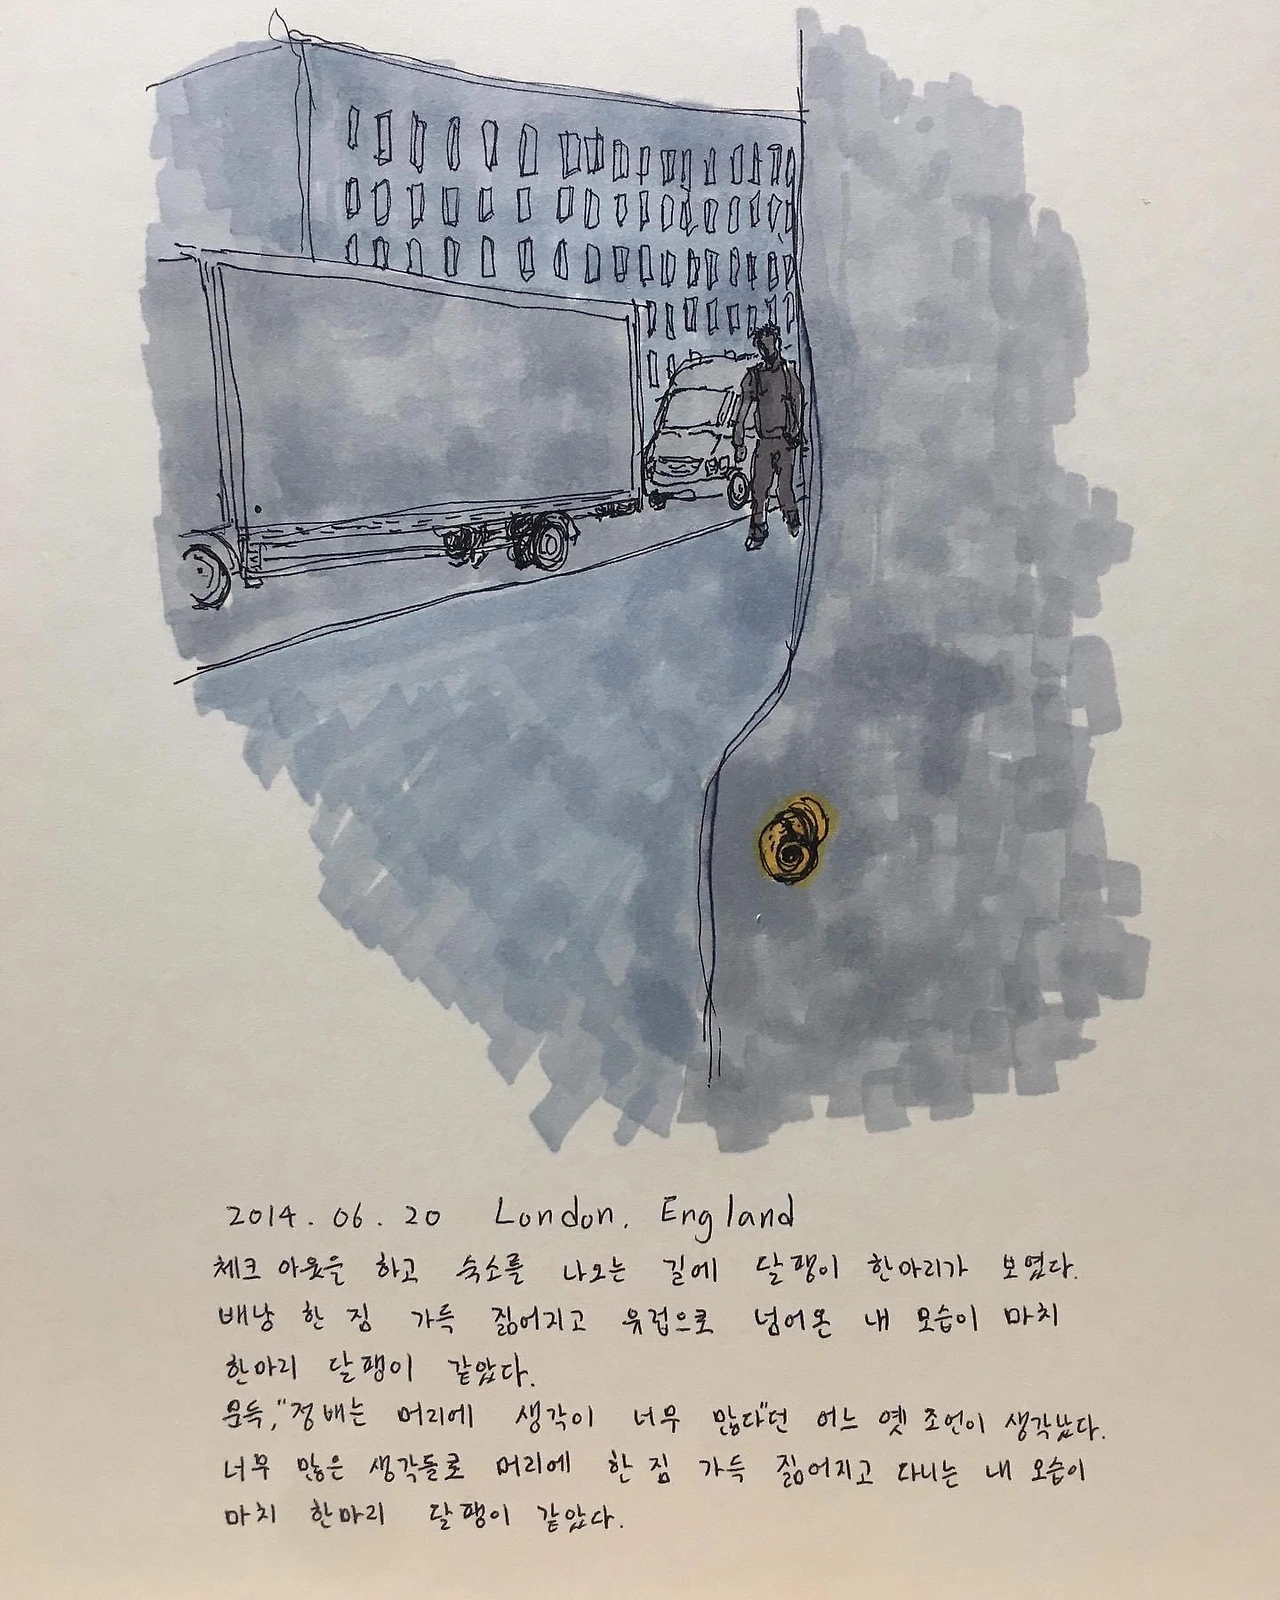 2014. 06. 20 London, England
체크 아웃을 하고 숙소를 나오는 길에 달팽이 한마리가 보였다.
배낭 한 짐 가득 짊어지고 유럽으로 넘어온 내 모습이 마치
한마리 달팽이 같았다.
문득, "정배는 머리에 생각이 너무 많다"던 어느 옛 조언이 생각났다.
너무 많은 생각들로 머리에 한 짐 가득 짊어지고 다니는 내 모습이
마치 한마리 달팽이 같았다.